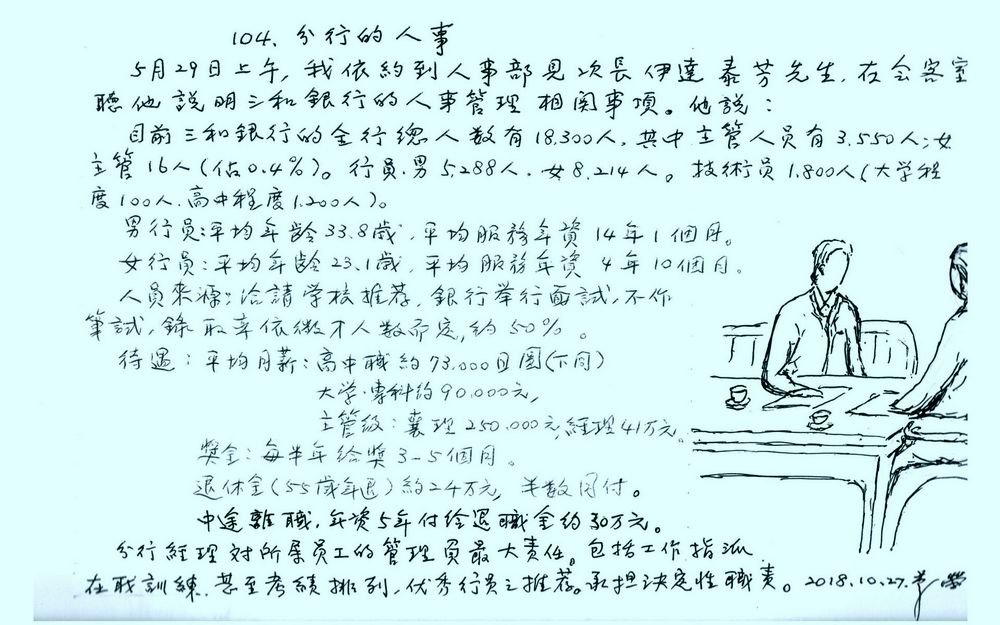 104、分行的人事
5月29日上午，我依約到人事部見次長伊達泰芳先生，在会客室
聽他説明三和銀行的人事管理相関事項。他說：
目前三和銀行的全行總人数有18,300人，其中主管人员有3,550人；女
主管16人(佔0.4%)。行員、男5,288人、女8,214人。技術員1,800人(大学程
度100人、高中程度1,200人)。
男行员：平均年齡33.8歲，平均服務年資14年1個月。
女行員：平均年齡23.1歲，平均服務年資4年10個月。
人員來源：洽請学校推荐，銀行举行面試，不作
筆試，錄取率依徵才人数而定，約50%。
待遇：平均月薪：高中職約73,000日圓(下同)
大学、專科約90,000元，
主管級：襄理250,000元，經理41万元。
奬金：每半年给奬3-5個月。
退休金(55歲年退)約24万元，半数月付。
中途離職，年資5年付给退職金約30万元。
分行經理対所属員工的管理負最大責任。包括工作指派
在职訓練，甚至考績排列，优秀行員之推荐。承担決定性職責。2018.10.27.